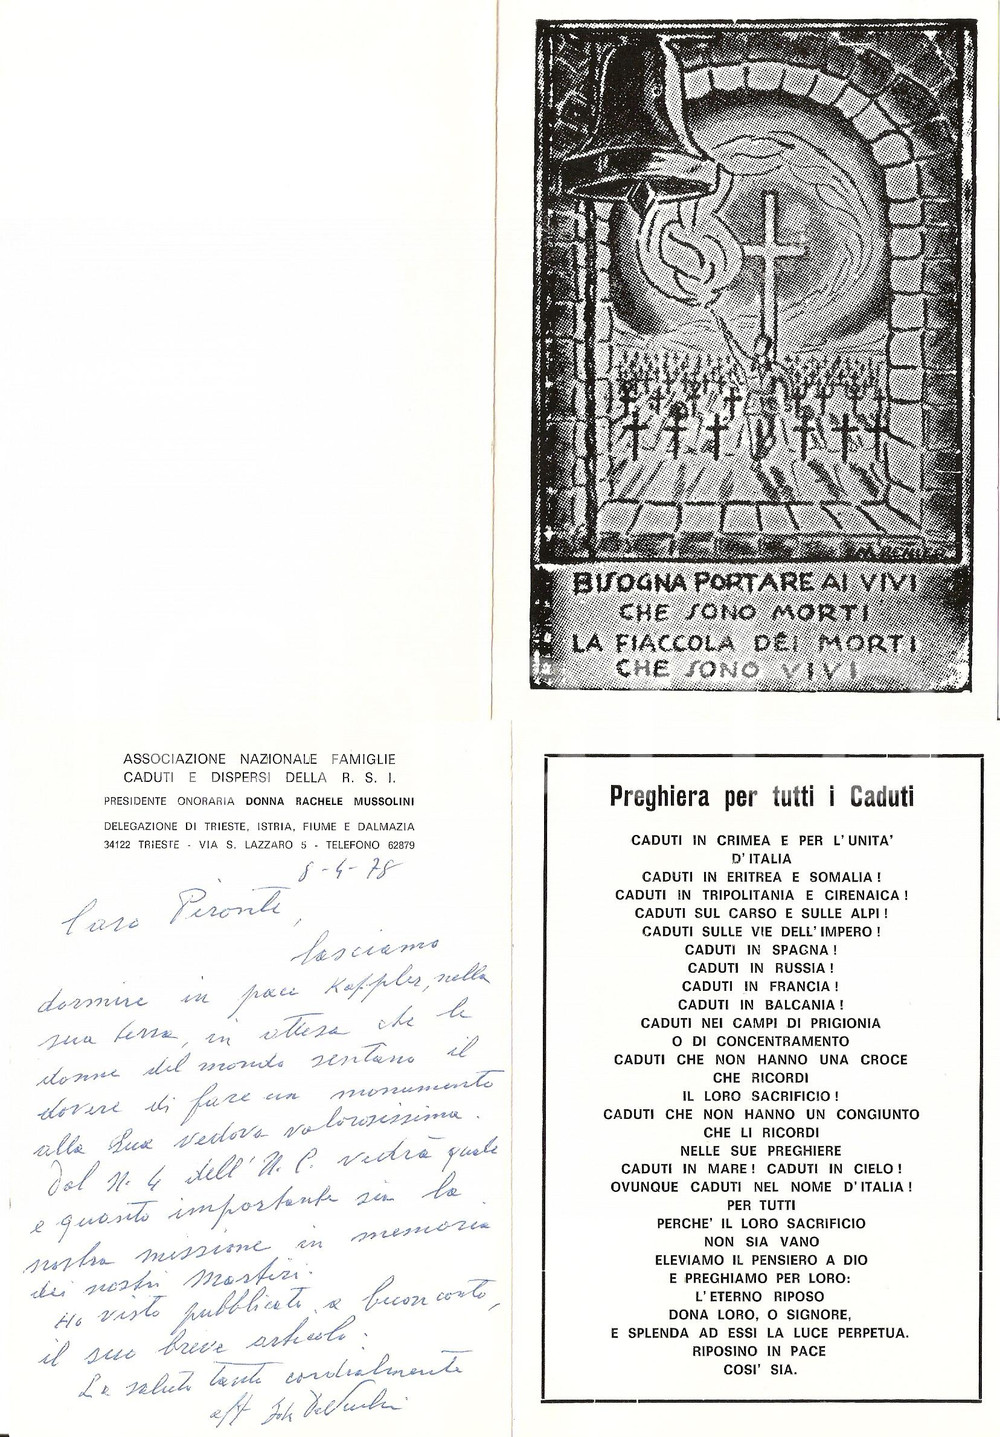 M. RENIER
BISOGNA PORTARE AI VIVI
CHE SONO MORTI
LA FIACCOLA DEI MORTI
CHE SONO VIVI
ASSOCIAZIONE NAZIONALE FAMIGLIE
CADUTI E DISPERSI DELLA R. S. I.
PRESIDENTE ONORARIA DONNA RACHELE MUSSOLINI
DELEGAZIONE DI TRIESTE, ISTRIA, FIUME E DALMAZIA
34122 TRIESTE - VIA S. LAZZARO 5 - TELEFONO 62879
8-4-78
Caro Pironti,
lasciamo
dormire in pace Kappler, nella
sua terra, in attesa che le
donne del mondo sentano il
dovere di fare un monumento
alla Sua vedova valorosissima.
Dal N. 4 dell'N. C. vedrà quale
e quanto importante sia la
nostra missione in memoria
dei nostri Martiri.
Ho visto pubblicato, a buon conto,
il suo breve articolo.
La saluto tanto cordialmente
aff
Preghiera per tutti i Caduti
CADUTI IN CRIMEA E PER L'UNITA'
D'ITALIA
CADUTI IN ERITREA E SOMALIA!
CADUTI IN TRIPOLITANIA E CIRENAICA!
CADUTI SUL CARSO E SULLE ALPI!
CADUTI SULLE VIE DELL'IMPERO!
CADUTI IN SPAGNA!
CADUTI IN RUSSIA!
CADUTI IN FRANCIA!
CADUTI IN BALCANIA!
CADUTI NEI CAMPI DI PRIGIONIA
O DI CONCENTRAMENTO
CADUTI CHE NON HANNO UNA CROCE
CHE RICORDI
IL LORO SACRIFICIO!
CADUTI CHE NON HANNO UN CONGIUNTO
CHE LI RICORDI
NELLE SUE PREGHIERE
CADUTI IN MARE! CADUTI IN CIELO!
OVUNQUE CADUTI NEL NOME D'ITALIA!
PER TUTTI
PERCHE' IL LORO SACRIFICIO
NON SIA VANO
ELEVIAMO IL PENSIERO A DIO
E PREGHIAMO PER LORO:
L'ETERNO RIPOSO
DONA LORO, O SIGNORE,
E SPLENDA AD ESSI LA LUCE PERPETUA.
RIPOSINO IN PACE
COSI' SIA.